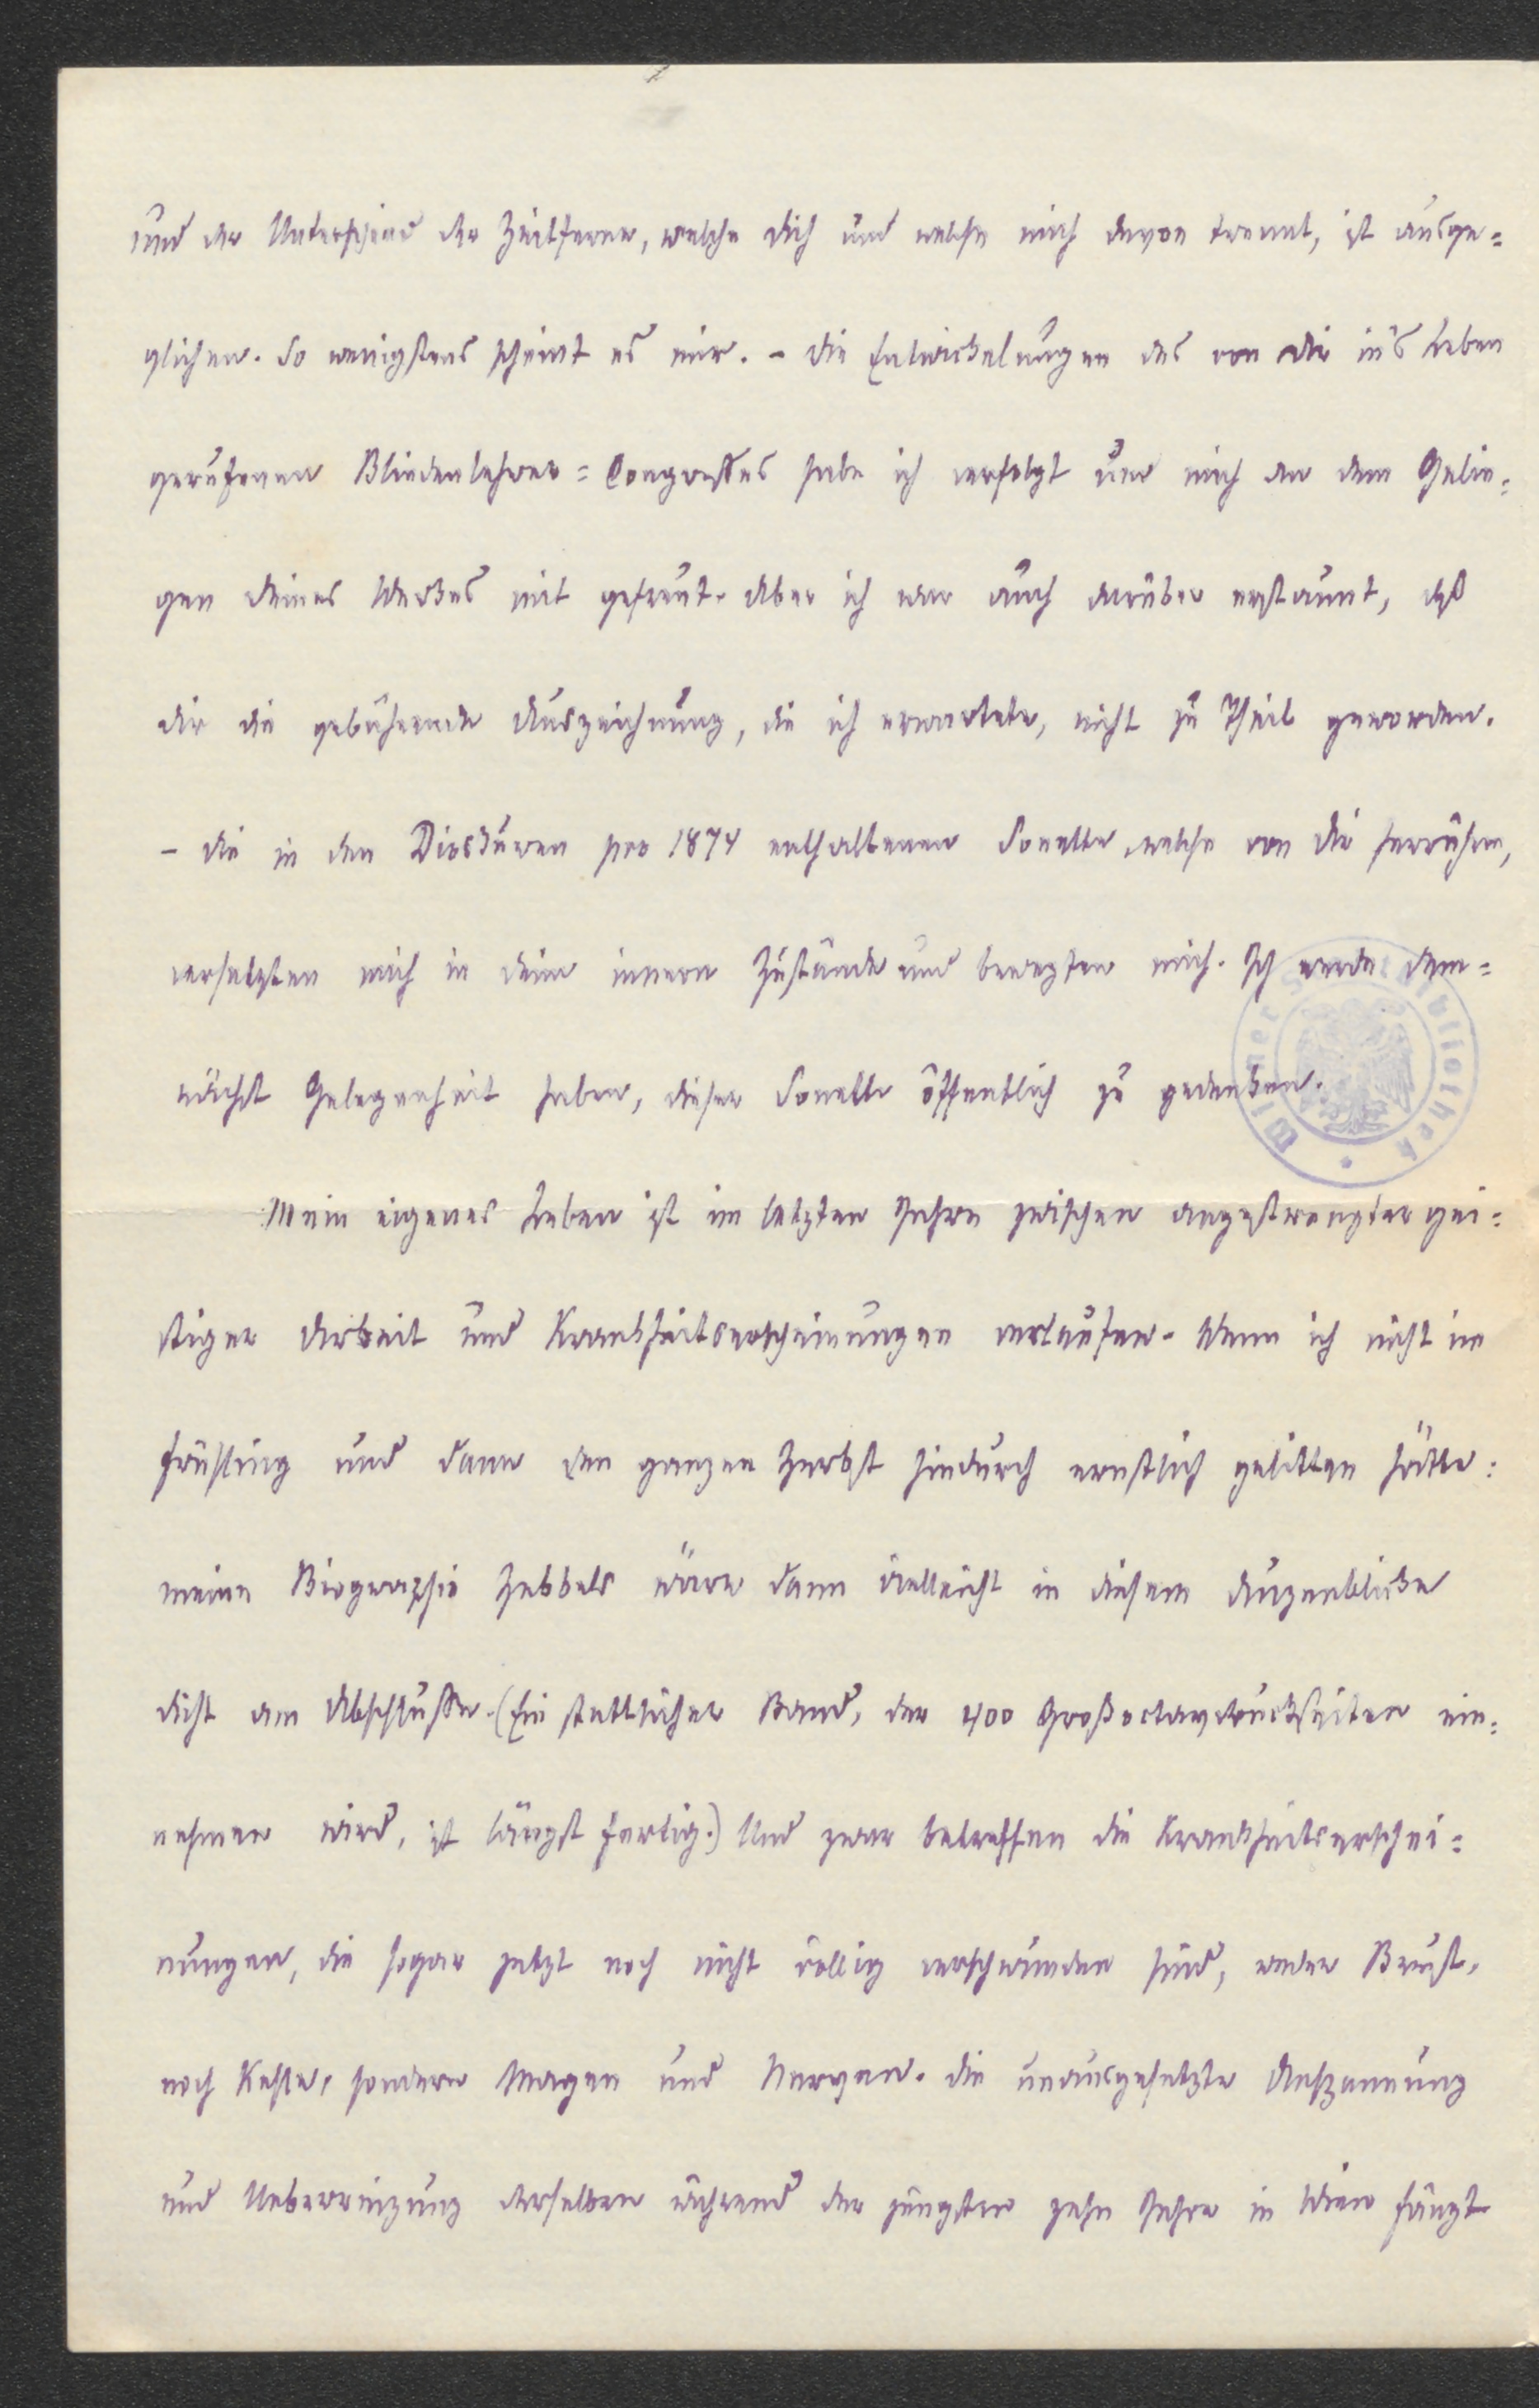 und der Unterschied der Zeitferne, welche dich und welche mich davon trennt, ist ausge=
glichen. So wenigstens scheint es mir. – Die Entwickelungen des von dir in's Leben
gerufenen Blindenlehrer=Congresses habe ich verfolgt und mich an dem Gelin=
gen deines Werkes mit gefreut. Aber ich war auch darüber erstaunt, daß
dir die gebührende Auszeichnung, die ich erwartete, nicht zu Theil geworden.
– Die in den Dioskuren pro 1874 enthaltenen Sonette, welche von dir herrühren,
versetzten mich in deine innern Zustände und bewegten mich. Ich werde dem=
nächst Gelegenheit haben, dieser Sonette öffentlich zu gedenken.
Mein eigenes Leben ist im letzten Jahre zwischen angestrengter gei=
stiger Arbeit und Krankheitserscheinungen verlaufen. Wenn ich nicht im
Frühling und dann den ganzen Herbst hindurch ernstlich gelitten hätte:
meine Biographie Hebbels wäre dann vielleicht in diesem Augenblicke
dicht am Abschlusse. (Ein stattlicher Band, der 400 Großoctavdruckseiten ein=
nehmen wird, ist längst fertig.) Und zwar betreffen die Krankheitserschei=
nungen, die sogar jetzt noch nicht völlig verschwunden sind, weder Brust,
noch Kehle, sondern Magen und Nerven. Die unausgesetzte Anspannung
und Ueberreizung derselben während der jüngsten zehn Jahre in Wien fängt
Wiener Stadtbibliothek